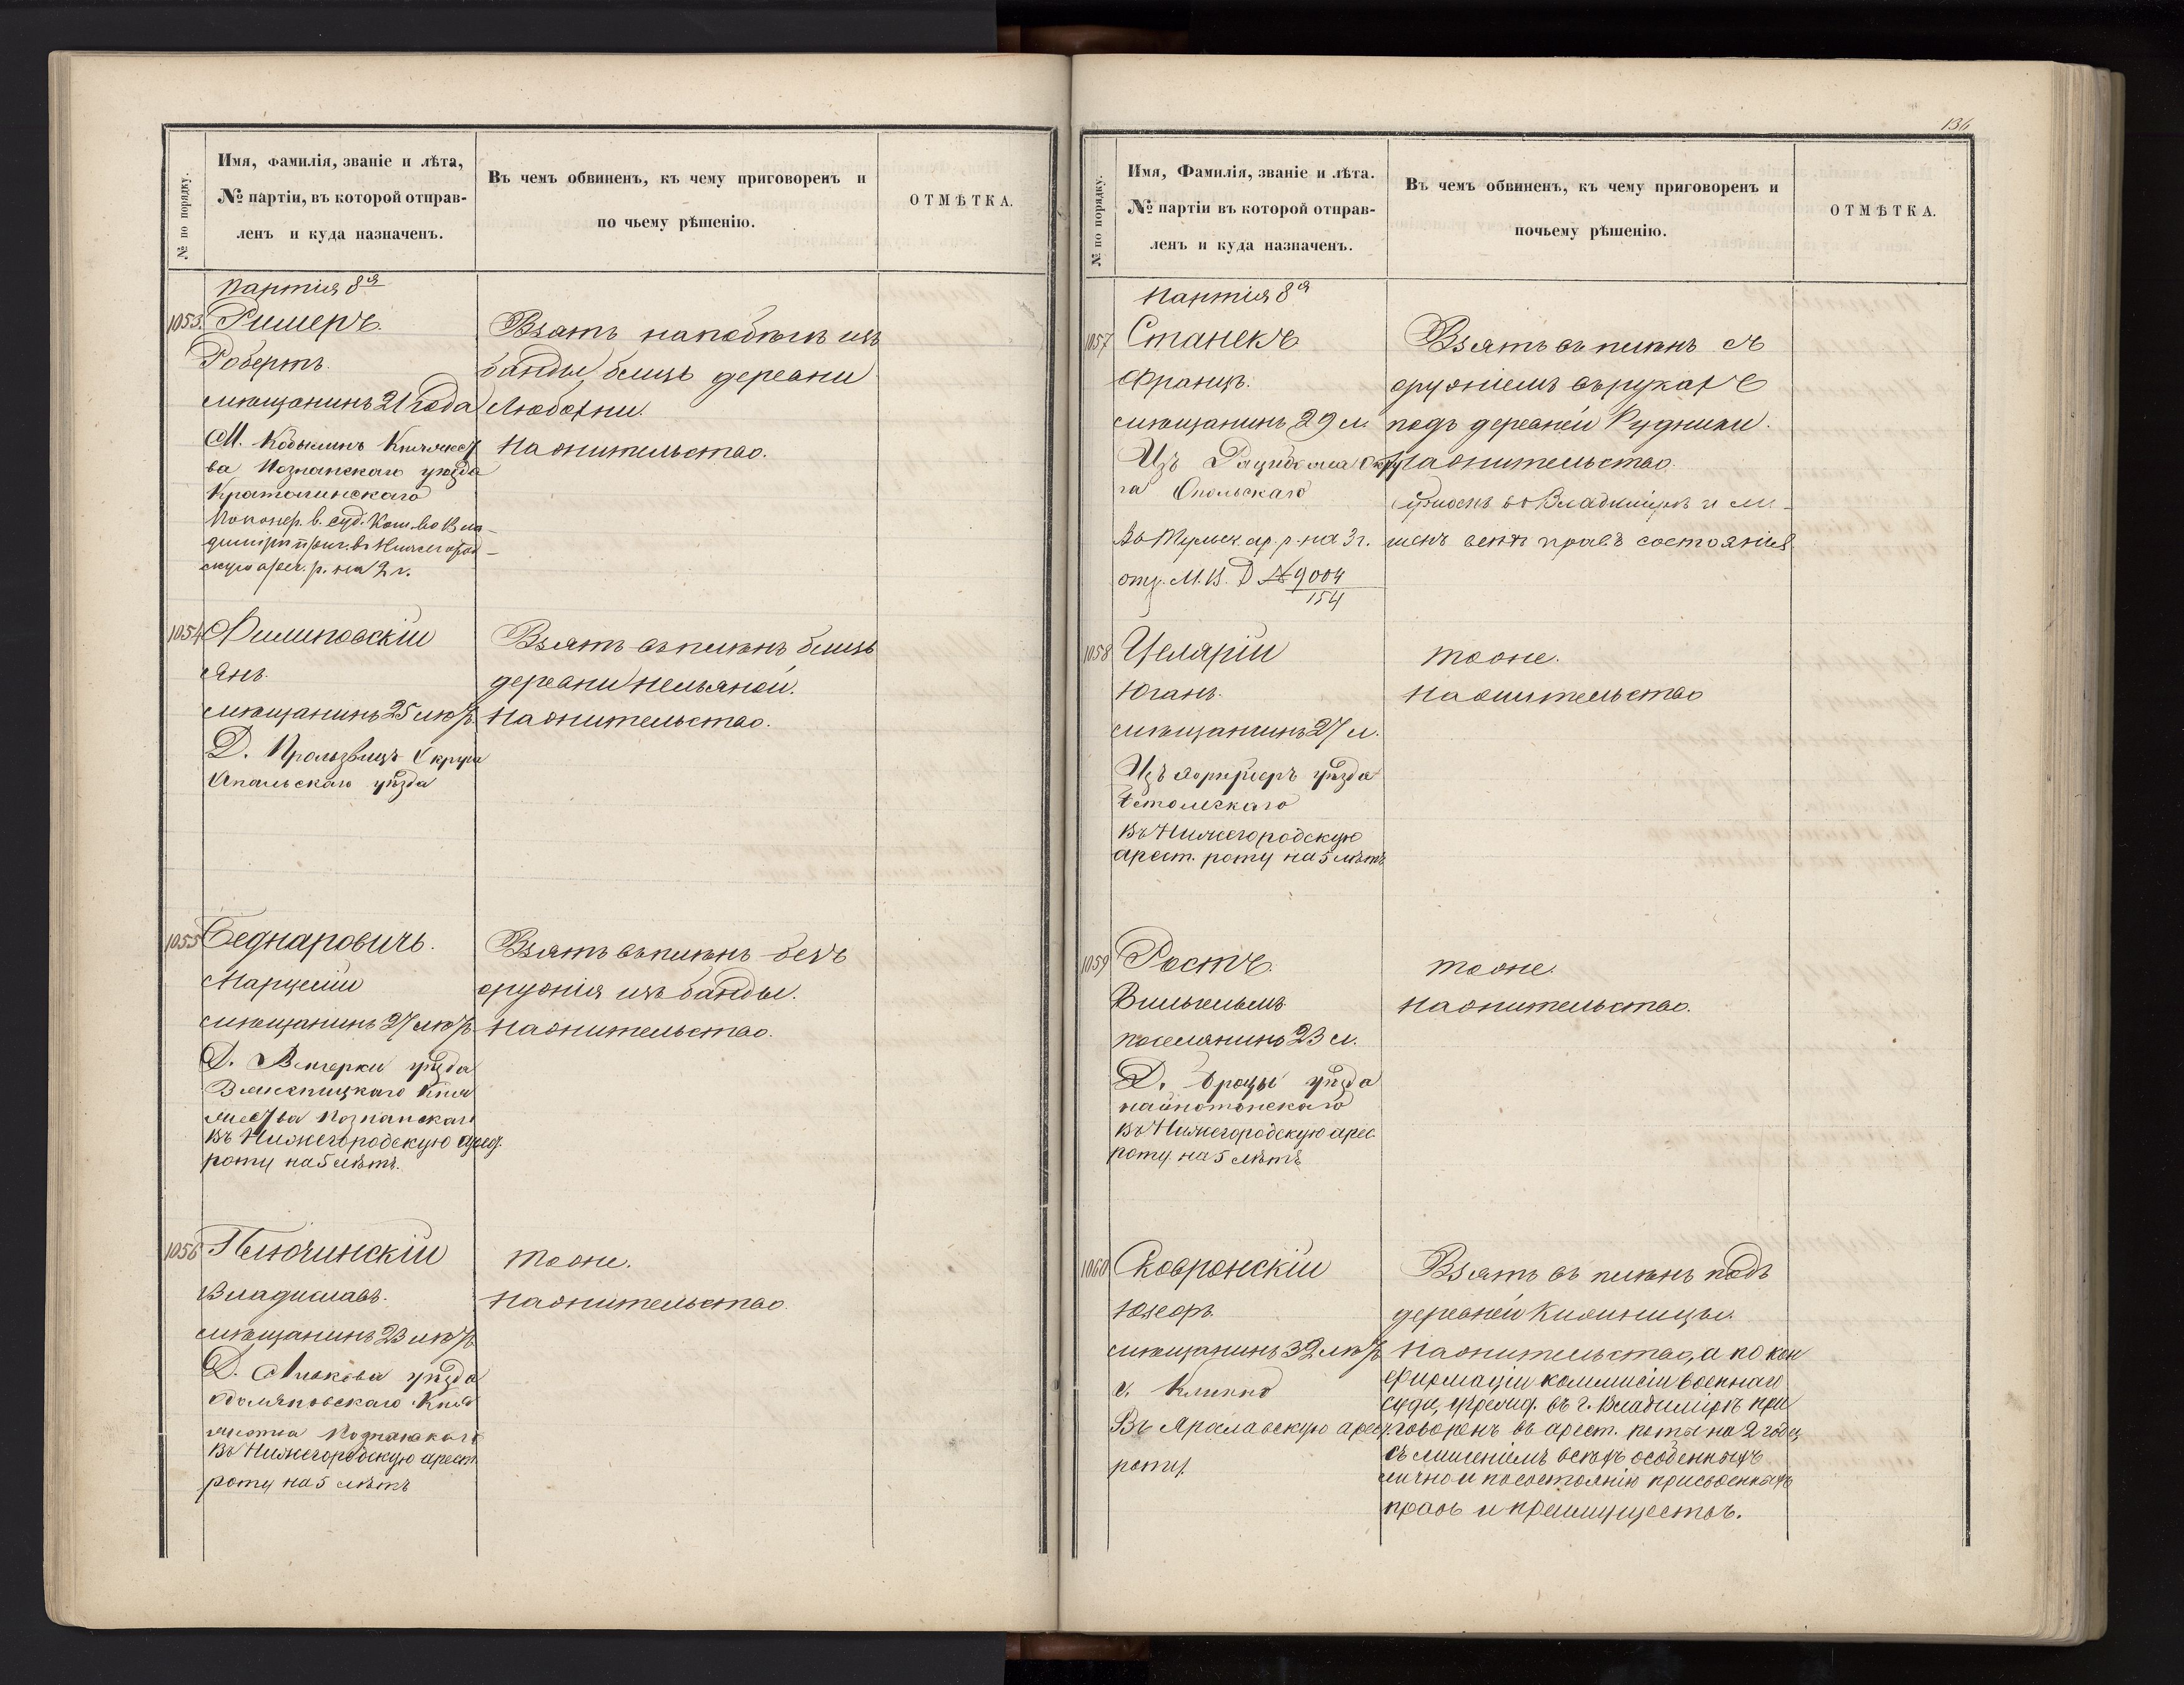 № по порядку.
Имя, фамилія, званіе и лѣта,
№ партіи, въ которой отправ-
ленъ и куда назначенъ.
Въ чемъ обвиненъ, къ чему приговоренъ и
по чьему рѣшенію.
ОТМѢТКА.
Партія 8я
1053.
Ришеръ.
Робертъ.
мѣщанинъ 21 года
М. Кобылинъ
ва Познанскаго уѣзда
Кратошинскаго
По конфер. в. суд. Ком. во Вла-
димірѣ приг. въ Нижегород-
скую арест. р. на 2 г.
Взятъ на побѣгѣ изъ
банды, близь деревни
Любохни.
На жительство.
1054
Филиповскій
Янъ.
мѣщанинъ 25 лѣтъ
Д. Округа
Опольскаго уѣзда
Взятъ въ плѣнъ близь
деревни Пельяной.
На жительство.
1055
Беднаровичь.
Марцелій
мѣщанинъ 27 лѣтъ
Д. уѣзда
Познанскаго
Въ Нижегородскую арест.
роту на 5 лѣтъ.
Взятъ въ плѣнъ безъ
оружія изъ банды.
На жительство.
1056
Владиславъ.
мѣщанинъ 23 лѣтъ
Д. уѣзда
Познанскаго
Въ Нижегородскую арест.
роту на 5 лѣтъ
Тоже.
На жительство.
136
№ по порядку.
Имя, Фамилія, званіе и лѣта.
№ партіи въ которой отправ-
ленъ и куда назначенъ.
Въ чемъ обвиненъ, къ чему приговоренъ и
почьему рѣшенію.
ОТМѢТКА.
Партія 8я
1057
Станекъ
Францъ.
мѣщанинъ 29 л.
Изъ Окру
га Опольскаго
Въ Тульск. ар. р. на 3 г.
отз. М. В. Д № 9004
154
Взятъ въ плѣнъ съ
оружіемъ въ рукахъ
подъ деревней Рудники.
На жительство.
Суженъ во Владимірѣ и ли-
шенъ всѣхъ правъ состоянія
1058
Целярій
Юганъ.
мѣщанинъ 27 л.
Изъ уѣзда
Въ Нижегородскую
арест. роту на 5 лѣтъ
Тоже.
На жительство
1059
Ростъ.
Вильгельмъ
поселянинъ 23 л.
Д. уѣзда
Въ Нижегородскую арес.
роту на 5 лѣтъ
Тоже.
На жительство.
1060
Сковронскій
Юзефъ.
мѣщанинъ 32 лѣтъ
Въ Ярославскую арест.
роту.
Взятъ въ плѣнъ подъ
деревней
На жительство, а по кон
фирмаціи коммисіи военнаго
суда, учрежд. въ г. Владимірѣ при
говоренъ въ арест. роты на 2 года
съ лишеніемъ всѣхъ особенныхъ
лично и по состоянію присвоенныхъ
правъ и преимуществъ.